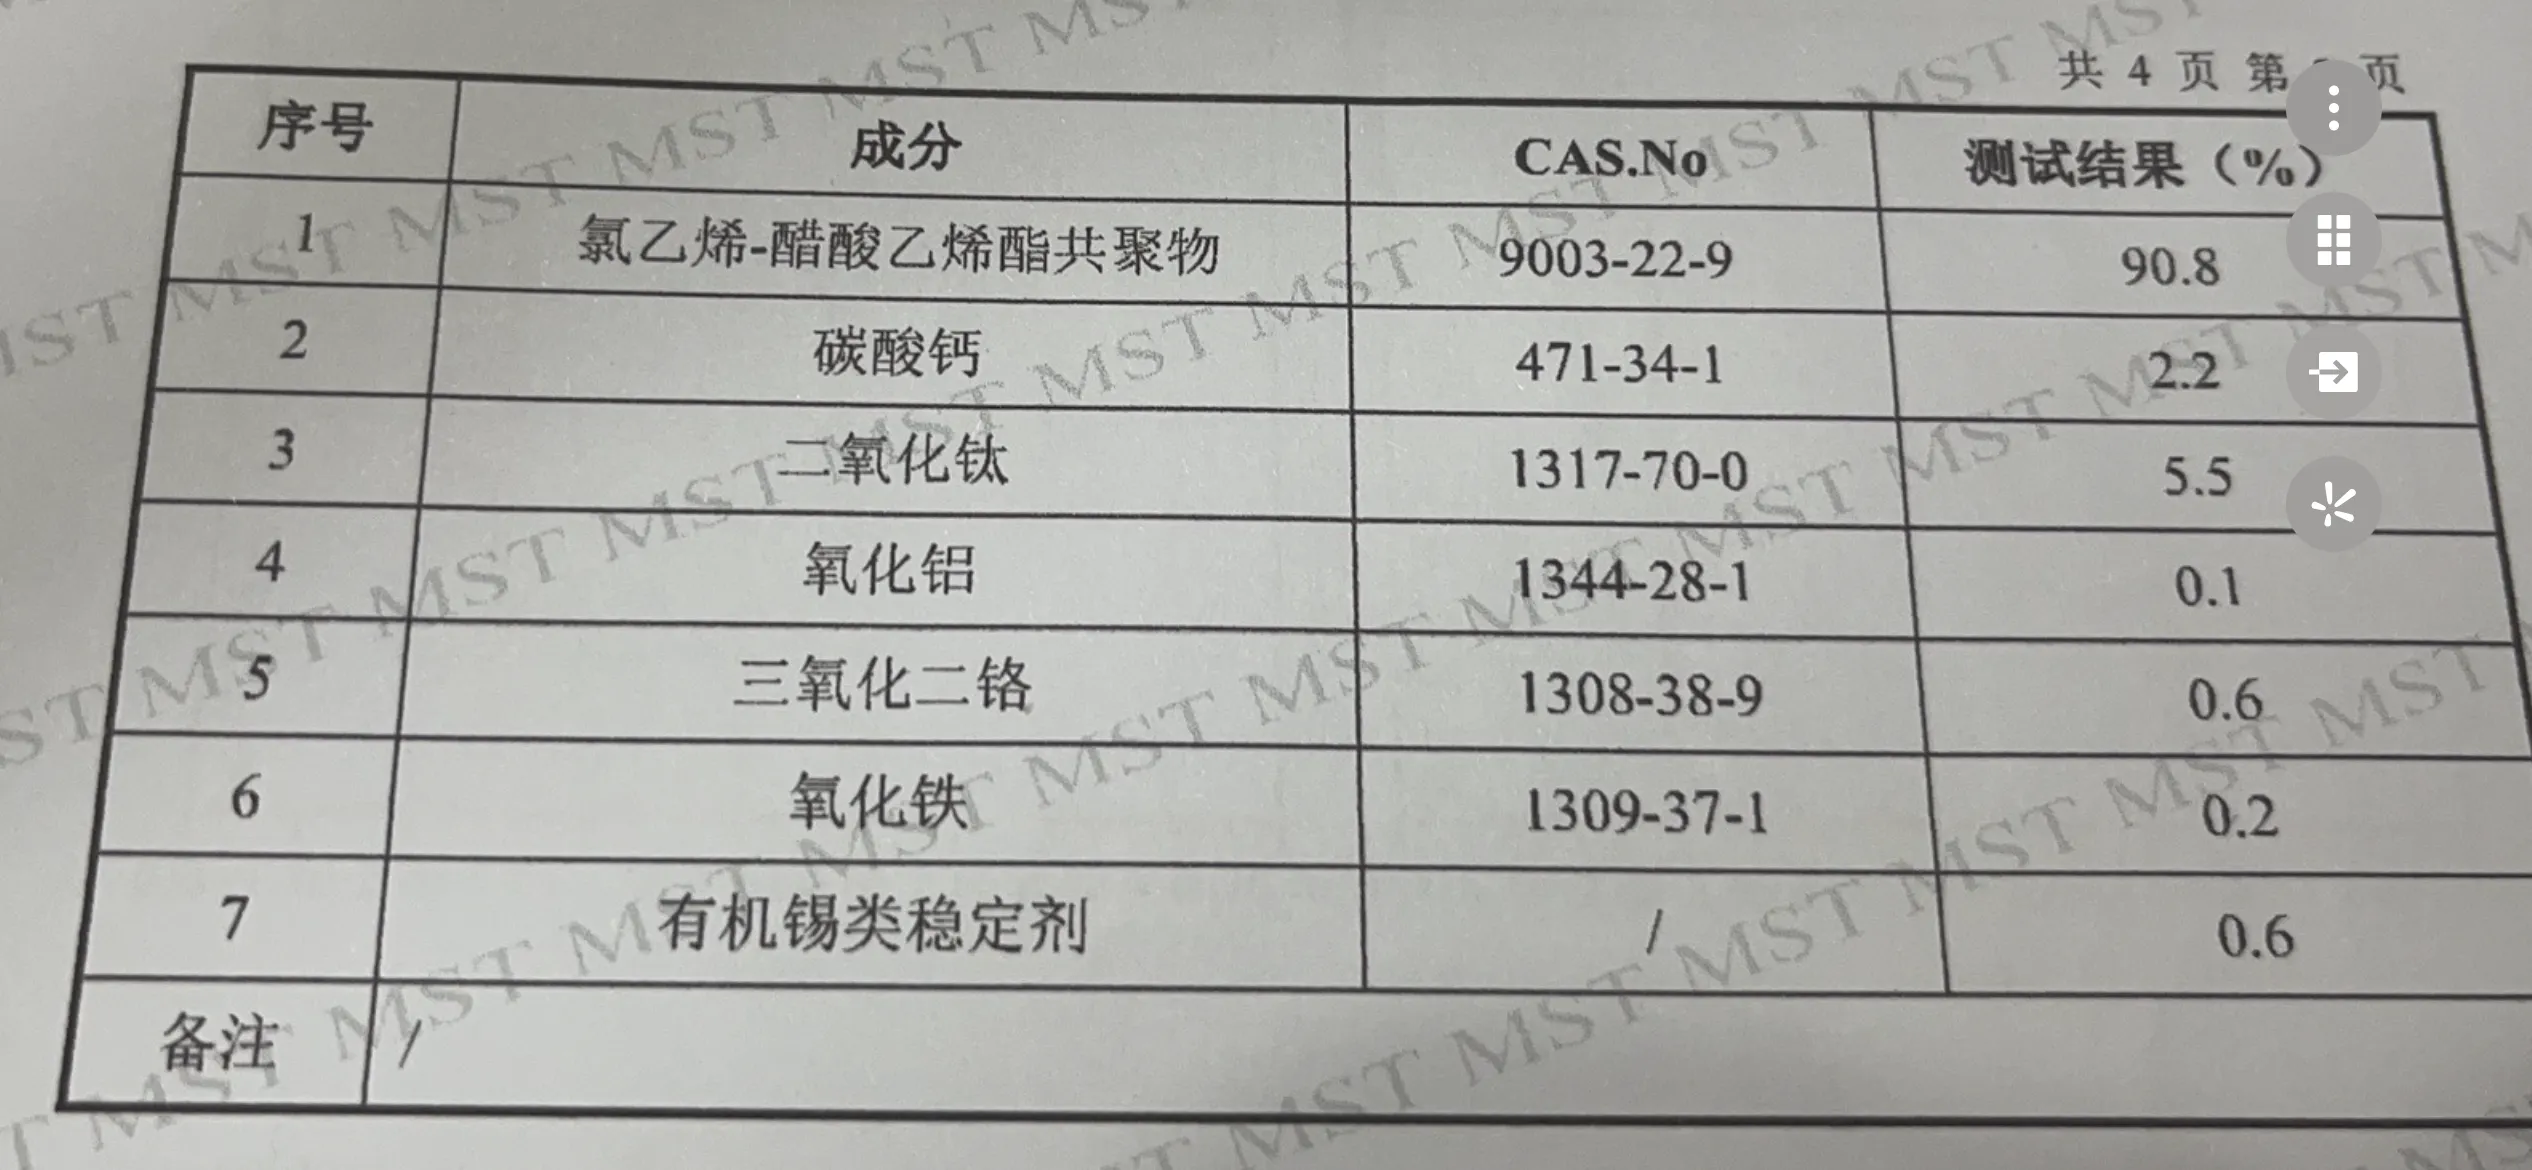 共 4 页 第 页
序号 成分 CAS.No 测试结果（%）
1 氯乙烯-醋酸乙烯酯共聚物 9003-22-9 90.8
2 碳酸钙 471-34-1 2.2
3 二氧化钛 1317-70-0 5.5
4 氧化铝 1344-28-1 0.1
5 三氧化二铬 1308-38-9 0.6
6 氧化铁 1309-37-1 0.2
7 有机锡类稳定剂 / 0.6
备注 /
MST MST MST MST MST MST